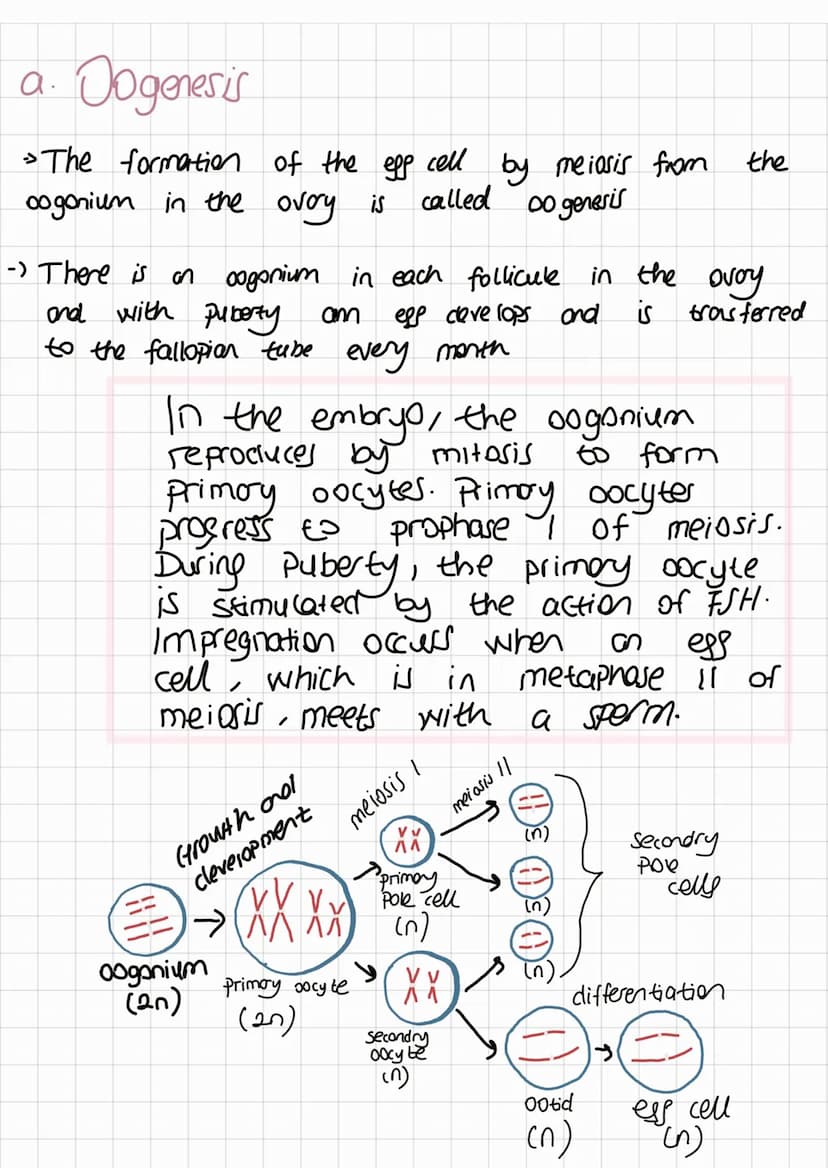 a. Oogenesis
→ The formation of the egg cell by meiosis from the
oogonium in the ovary is called oogenesis
-) There is an oogonium in each follicule in the ovary
and with puberty an egg develops and is transferred
to the fallopian tube every month
In the embryo, the oogonium
reproduces by mitosis to form
primary oocytes. Primary oocytes
progress to prophase I of meiosis.
During puberty, the primary oocyte
is stimulated by the action of FSH.
Impregnation occurs when an egg
cell, which is in metaphase II of
meiosis, meets with a sperm.
Growth and
development
meiosis I
meiosis II
(n)
(n)
(n)
secondry
pole
cells
primary
pole cell
(n)
oogonium
(2n)
primary oocyte
(2n)
secondry
oocyte
(n)
differentiation
ootid
(n)
egg cell
(n)